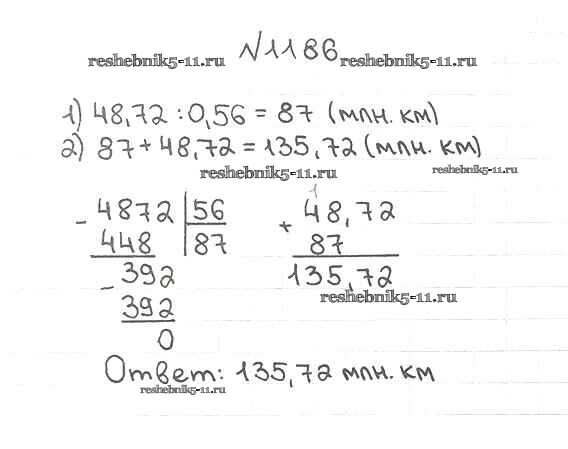 N1186
reshebnik5-11.ru reshebnik5-11.ru
1) 48,72 : 0,56 = 87 (млн. км)
2) 87 + 48,72 = 135,72 (млн. км)
reshebnik5-11.ru reshebnik5-11.ru
- 4872 | 56
448 | 87
- 392
392
0
1
+ 48,72
87
135,72
reshebnik5-11.ru
Ответ: 135,72 млн. км
reshebnik5-11.ru